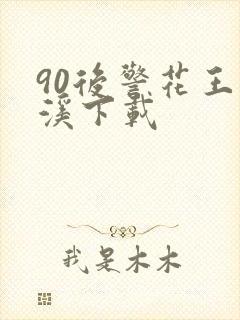 90後警花王
溪下載
我是木木